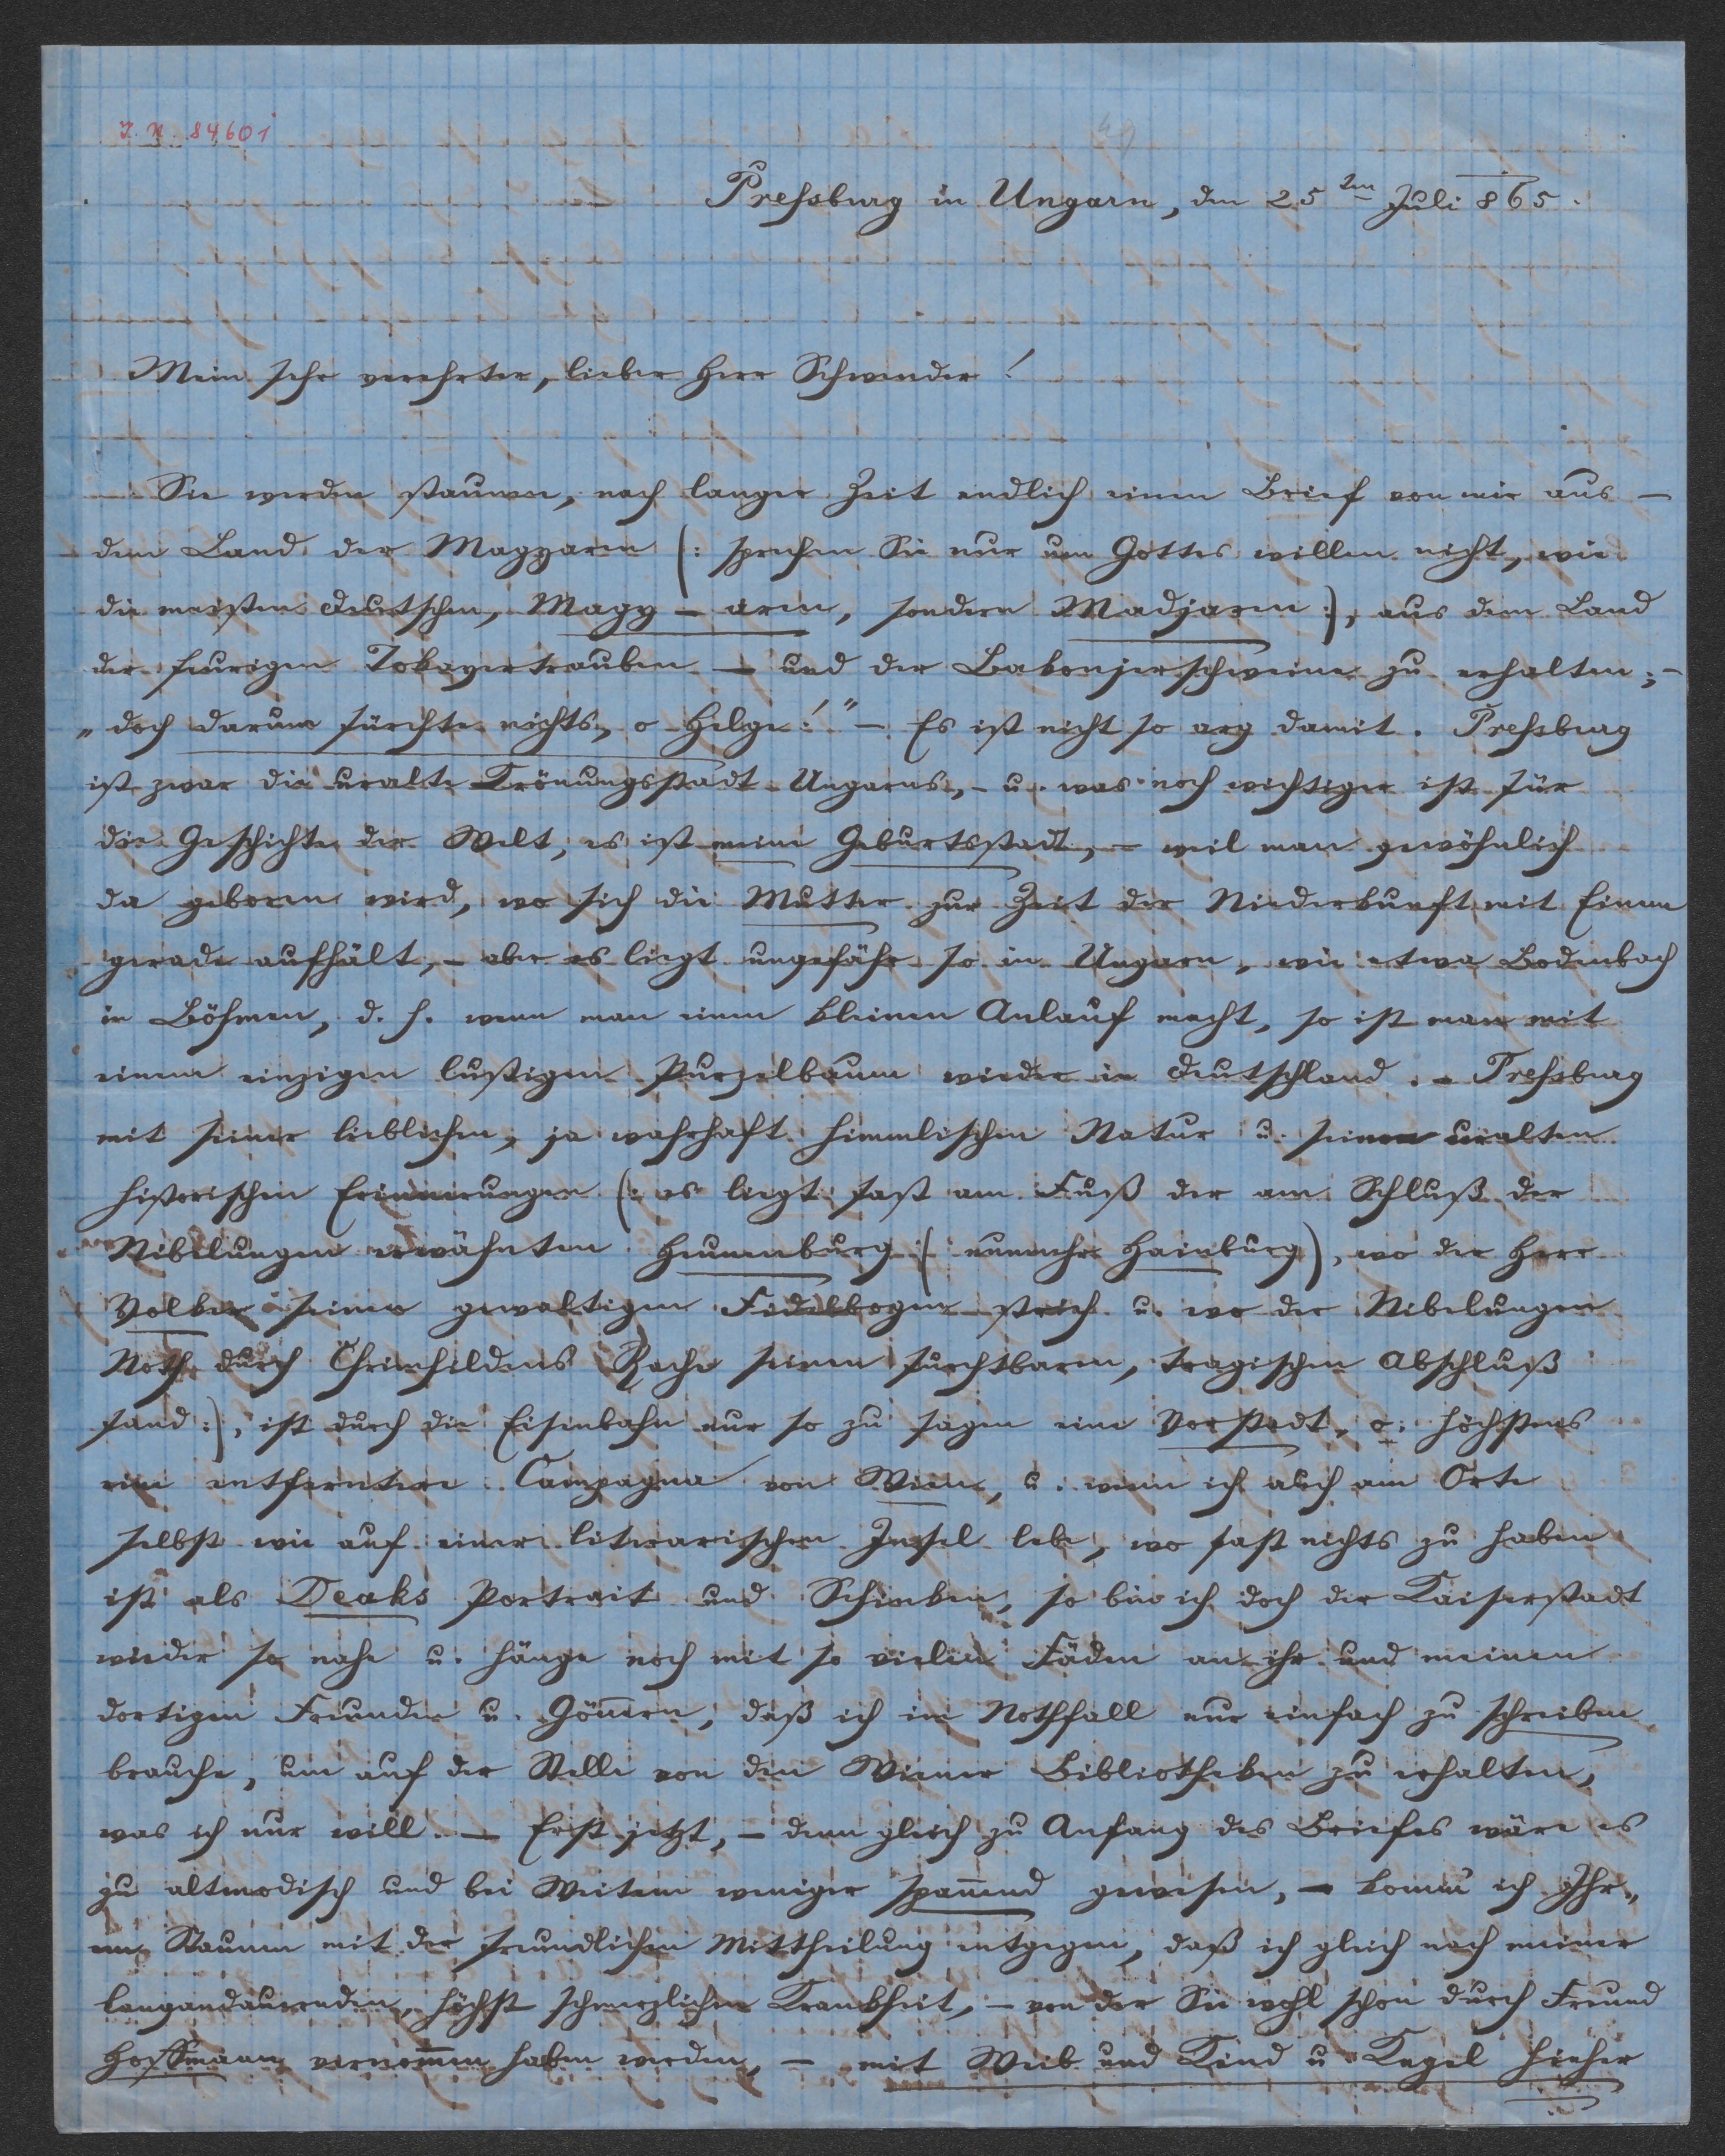 I. N. 84601
49
Preßburg in Ungarn, den 25ten Juli 865.
Mein sehr verehrter, lieber Herr Schwender!
Sie werden staunen, nach langer Zeit endlich einen Brief von mir aus –
dem Land der Magyaren (: sprechen Sie nur um Gottes willen nicht, wie
die meisten Deutschen, Magy – aren, sondern Madjaren:), aus dem Land
der feurigen Tokayertrauben – und der Bakonjerschweine zu erhalten; –
„doch darum fürchte nichts, o Helge!" – Es ist nicht so arg damit. Preßburg
ist zwar die uralte Krönungsstadt Ungarns, – u. was noch wichtiger ist für
die Geschichte der Welt, es ist meine Geburtsstadt, – weil man gewöhnlich
da geboren wird, wo sich die Mutter zur Zeit der Niederkunft mit Einem
gerade aufhält, – aber es liegt ungefähr so in Ungarn, wie etwa Bodenbach
in Böhmen, d. h. wenn man einen kleinen Anlauf macht, so ist man mit
einem einzigen lustigen Purzelbaum wieder in Deutschland. – Preßburg
mit seiner lieblichen, ja wahrhaft himmlischen Natur u. seinen uralten
historischen Erinnerungen (: es liegt fast am Fuß der am Schluß der
Nibelungen erwähnten Heunenburg (: nunmehr Hainburg), wo der Herr
Volker seinen gewaltigen Fidelbogen strich u. wo der Nibelungen
Noth durch Chrimhildens Rache seinen furchtbaren, tragischen Abschluß
fand:), ist durch die Eisenbahn nur so zu sagen eine Vorstadt, o. höchstens
eine entferntere Campagna von Wien, u. wenn ich auch am Orte
selbst wie auf einer literarischen Insel lebe, wo fast nichts zu haben
ist als Deaks Portrait und Schinken, so bin ich doch der Kaiserstadt
wieder so nahe u. hänge noch mit so vielen Fäden an ihr und meinen
dortigen Freunden u. Gön̄ern, daß ich im Nothfall nur einfach zu schreiben
brauche, um auf der Stelle von den Wiener Bibliotheken zu erhalten,
was ich nur will. – Erst jetzt, – denn gleich zu Anfang des Briefes wäre es
zu altmodisch und bei Weitem weniger span̄end gewesen, – kom̄e ich Ihr„
em Staunen mit der freundlichen Mittheilung entgegen, daß ich gleich nach meiner
langandauernden, höchst schmerzlichen Krankheit, – von der Sie wohl schon durch Freund
Hoffmann vernom̄en haben werden, – mit Weib und Kind u. Kegel hieher